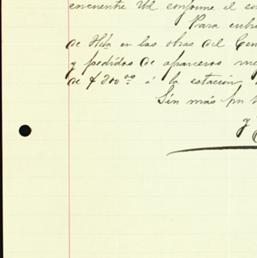 encuentre Ud conforme el
Para cubr
de Hda en las obras del Cen
y pedidos de aparceros me
de $200.00 á la estación,
Sin más pr
y